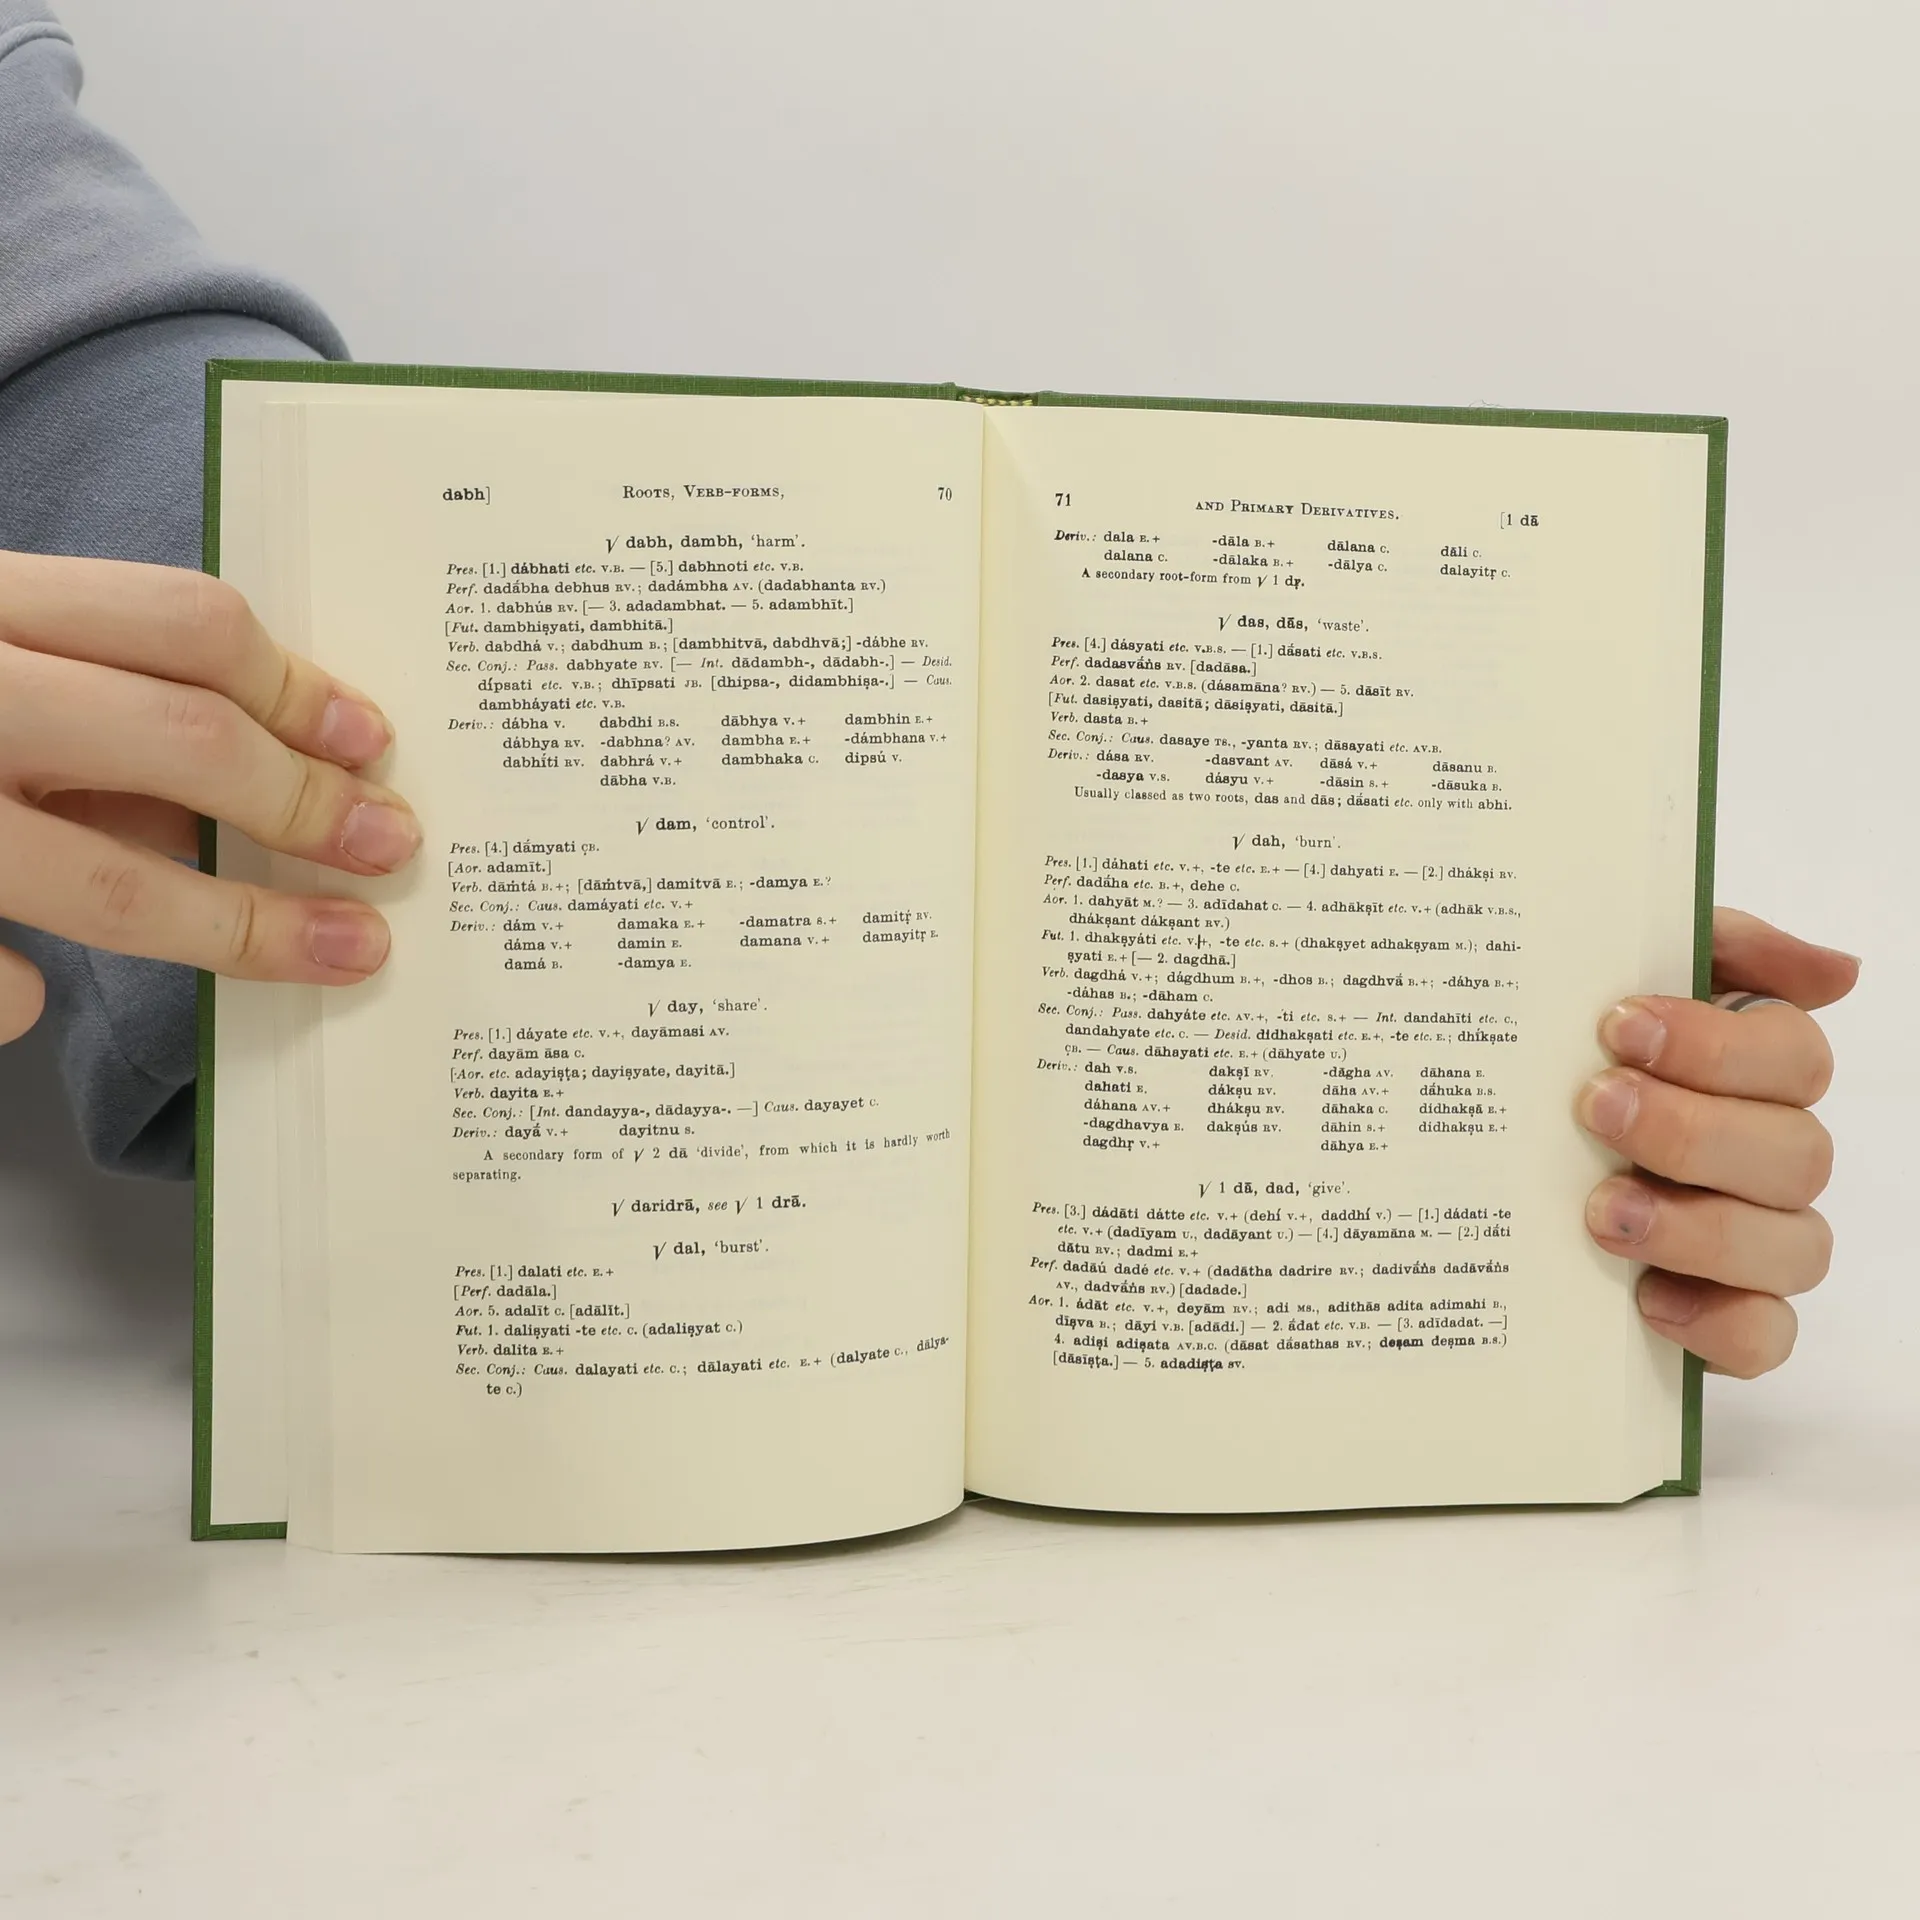 dabh] Roots, Verb-forms, 70
√ dabh, dambh, ‘harm’.
Pres. [1.] dábhati etc. v.b. — [5.] dabhnoti etc. v.b.
Perf. dadā́bha debhus rv.; dadámbha av. (dadabhanta rv.)
Aor. 1. dabhús rv. [— 3. adadambhat. — 5. adambhīt.]
[Fut. dambhiṣyati, dambhitā.]
Verb. dabdhá v.; dabdhum b.; [dambhitvā, dabdhvā;] -dábhe rv.
Sec. Conj.: Pass. dabhyate rv. [— Int. dādambh-, dādabh-.] — Desid.
dípsati etc. v.b.; dhīpsati jb. [dhipsa-, didambhiṣa-.] — Caus.
dambháyati etc. v.b.
Deriv.: dábha v. dabdhi b.s. dābhya v.+ dambhin e.+
dábhya rv. -dabhna? av. dambha e.+ -dámbhana v.+
dabhī́ti rv. dabhrá v.+ dambhaka c. dipsú v.
dābha v.b.
√ dam, ‘control’.
Pres. [4.] dā́myati çb.
[Aor. adamīt.]
Verb. dāṁtá b.+; [dāṁtvā,] damitvā e.; -damya e.?
Sec. Conj.: Caus. damáyati etc. v.+
Deriv.: dám v.+ damaka e.+ -damatra s.+ damitṛ́ rv.
dáma v.+ damin e. damana v.+ damayitṛ e.
damá b. -damya e.
√ day, ‘share’.
Pres. [1.] dáyate etc. v.+, dayāmasi av.
Perf. dayām āsa c.
[Aor. etc. adayiṣṭa; dayiṣyate, dayitā.]
Verb. dayita e.+
Sec. Conj.: [Int. dandayya-, dādayya-. —] Caus. dayayet c.
Deriv.: dayā́ v.+ dayitnu s.
A secondary form of √ 2 dā ‘divide’, from which it is hardly worth
separating.
√ daridrā, see √ 1 drā.
√ dal, ‘burst’.
Pres. [1.] dalati etc. e.+
[Perf. dadāla.]
Aor. 5. adalīt c. [adālīt.]
Fut. 1. daliṣyati -te etc. c. (adaliṣyat c.)
Verb. dalita e.+
Sec. Conj.: Caus. dalayati etc. c.; dālayati etc. e.+ (dalyate c., dālya-
te c.)
71 and Primary Derivatives. [1 dā
Deriv.: dala e.+ -dāla b.+ dālana c. dāli c.
dalana c. -dālaka b.+ -dālya c. dalayitṛ c.
A secondary root-form from √ 1 dṛ.
√ das, dās, ‘waste’.
Pres. [4.] dásyati etc. v.b.s. — [1.] dā́sati etc. v.b.s.
Perf. dadasvā́ṅs rv. [dadāsa.]
Aor. 2. dasat etc. v.b.s. (dásamāna? rv.) — 5. dāsīt rv.
[Fut. dasiṣyati, dasitā; dāsiṣyati, dāsitā.]
Verb. dasta b.+
Sec. Conj.: Caus. dasaye ts., -yanta rv.; dāsayati etc. av.b.
Deriv.: dása rv. -dasvant av. dāsá v.+ dāsanu b.
-dasya v.s. dásyu v.+ -dāsin s.+ -dāsuka b.
Usually classed as two roots, das and dās; dā́sati etc. only with abhi.
√ dah, ‘burn’.
Pres. [1.] dáhati etc. v.+, -te etc. e.+ — [4.] dahyati e. — [2.] dhákṣi rv.
Perf. dadā́ha etc. b.+, dehe c.
Aor. 1. dahyāt m.? — 3. adīdahat c. — 4. adhākṣīt etc. v.+ (adhāk v.b.s.,
dhákṣant dákṣant rv.)
Fut. 1. dhakṣyáti etc. v.+, -te etc. s.+ (dhakṣyet adhakṣyam m.); dahi-
ṣyati e.+ [— 2. dagdhā.]
Verb. dagdhá v.+; dágdhum b.+, -dhos b.; dagdhvā́ b.+; -dáhya b.+;
-dáhas b.; -dāham c.
Sec. Conj.: Pass. dahyáte etc. av.+, -ti etc. s.+ — Int. dandahīti etc. c.,
dandahyate etc. c. — Desid. didhakṣati etc. e.+, -te etc. e.; dhīkṣate
çb. — Caus. dāhayati etc. e.+ (dāhyate u.)
Deriv.: dah v.s. dakṣī rv. -dāgha av. dāhana e.
dahati e. dákṣu rv. dāha av.+ dā́huka b.s.
dáhana av.+ dhákṣu rv. dāhaka c. didhakṣā e.+
-dagdhavya e. dakṣús rv. dāhin s.+ didhakṣu e.+
dagdhṛ v.+ dāhya e.+
√ 1 dā, dad, ‘give’.
Pres. [3.] dádāti dátte etc. v.+ (dehí v.+, daddhí v.) — [1.] dádati -te
etc. v.+ (dadīyam u., dadāyant u.) — [4.] dāyamāna m. — [2.] dā́ti
dātu rv.; dadmi e.+
Perf. dadāú dadé etc. v.+ (dadātha dadrire rv.; dadivā́ṅs dadāvā́ṅs
av., dadvā́ṅs rv.) [dadade.]
Aor. 1. ádāt etc. v.+, deyām rv.; adi ms., adithās adita adimahi b.,
dīṣva b.; dāyi v.b. [adādi.] — 2. ā́dat etc. v.b. — [3. adīdadat. —]
4. adiṣi adiṣata av.b.c. (dāsat dā́sathas rv.; deṣam deṣma b.s.)
[dāsīṣṭa.] — 5. adadiṣṭa sv.